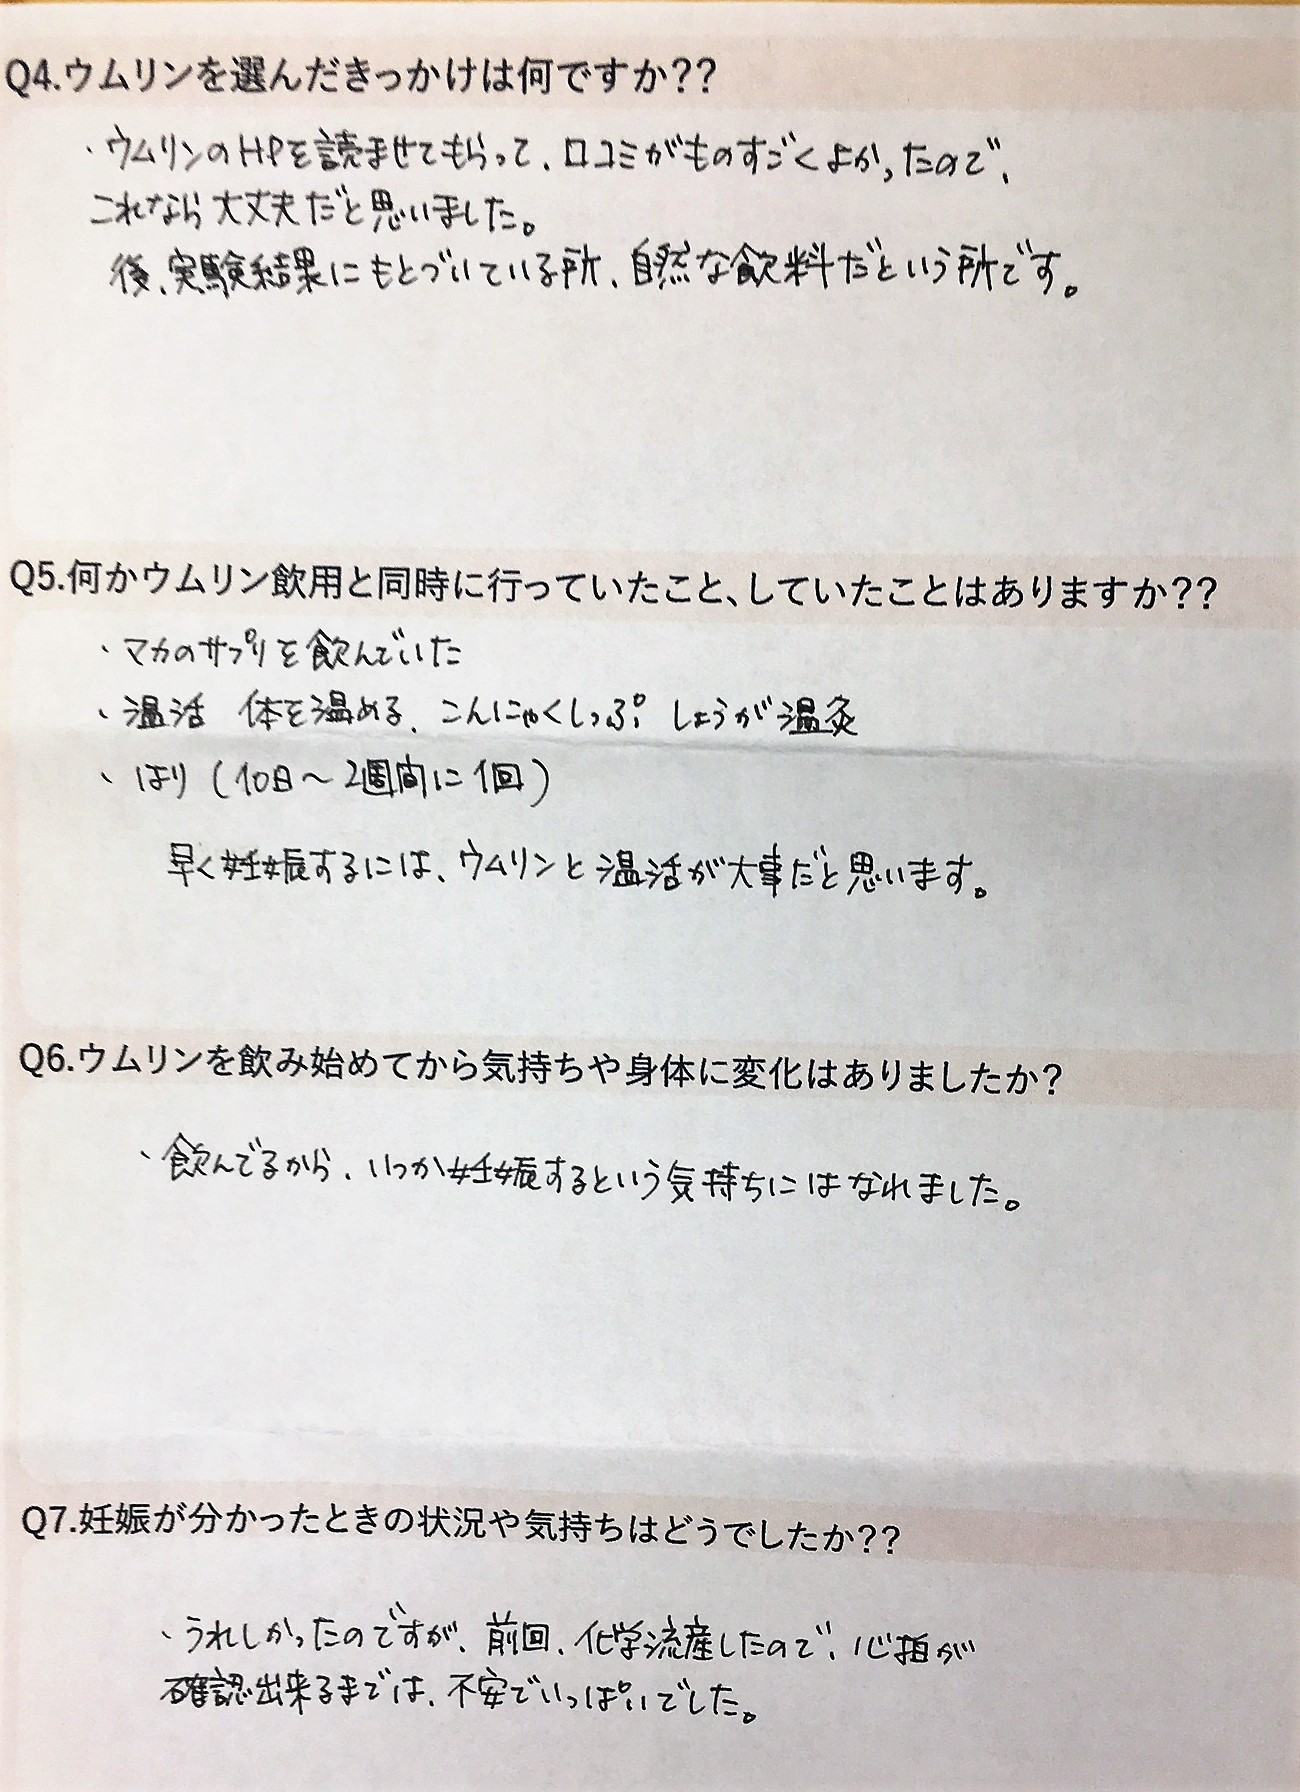 Q4.ウムリンを選んだきっかけは何ですか??
・ウムリンのHPを読ませてもらって、口コミがものすごくよかったので、
これなら大丈夫だと思いました。
後、実験結果にもとづいている所、自然な飲料だという所です。
Q5.何かウムリン飲用と同時に行っていたこと、していたことはありますか??
・マカのサプリを飲んでいた
・温活 体を温める、こんにゃくしっぷ しょうが温灸
・はり(10日〜2週間に1回)
早く妊娠するには、ウムリンと温活が大事だと思います。
Q6.ウムリンを飲み始めてから気持ちや身体に変化はありましたか?
・飲んでるから、いつか妊娠するという気持ちにはなれました。
Q7.妊娠が分かったときの状況や気持ちはどうでしたか??
・うれしかったのですが、前回、化学流産したので、心拍が
確認出来るまでは、不安でいっぱいでした。